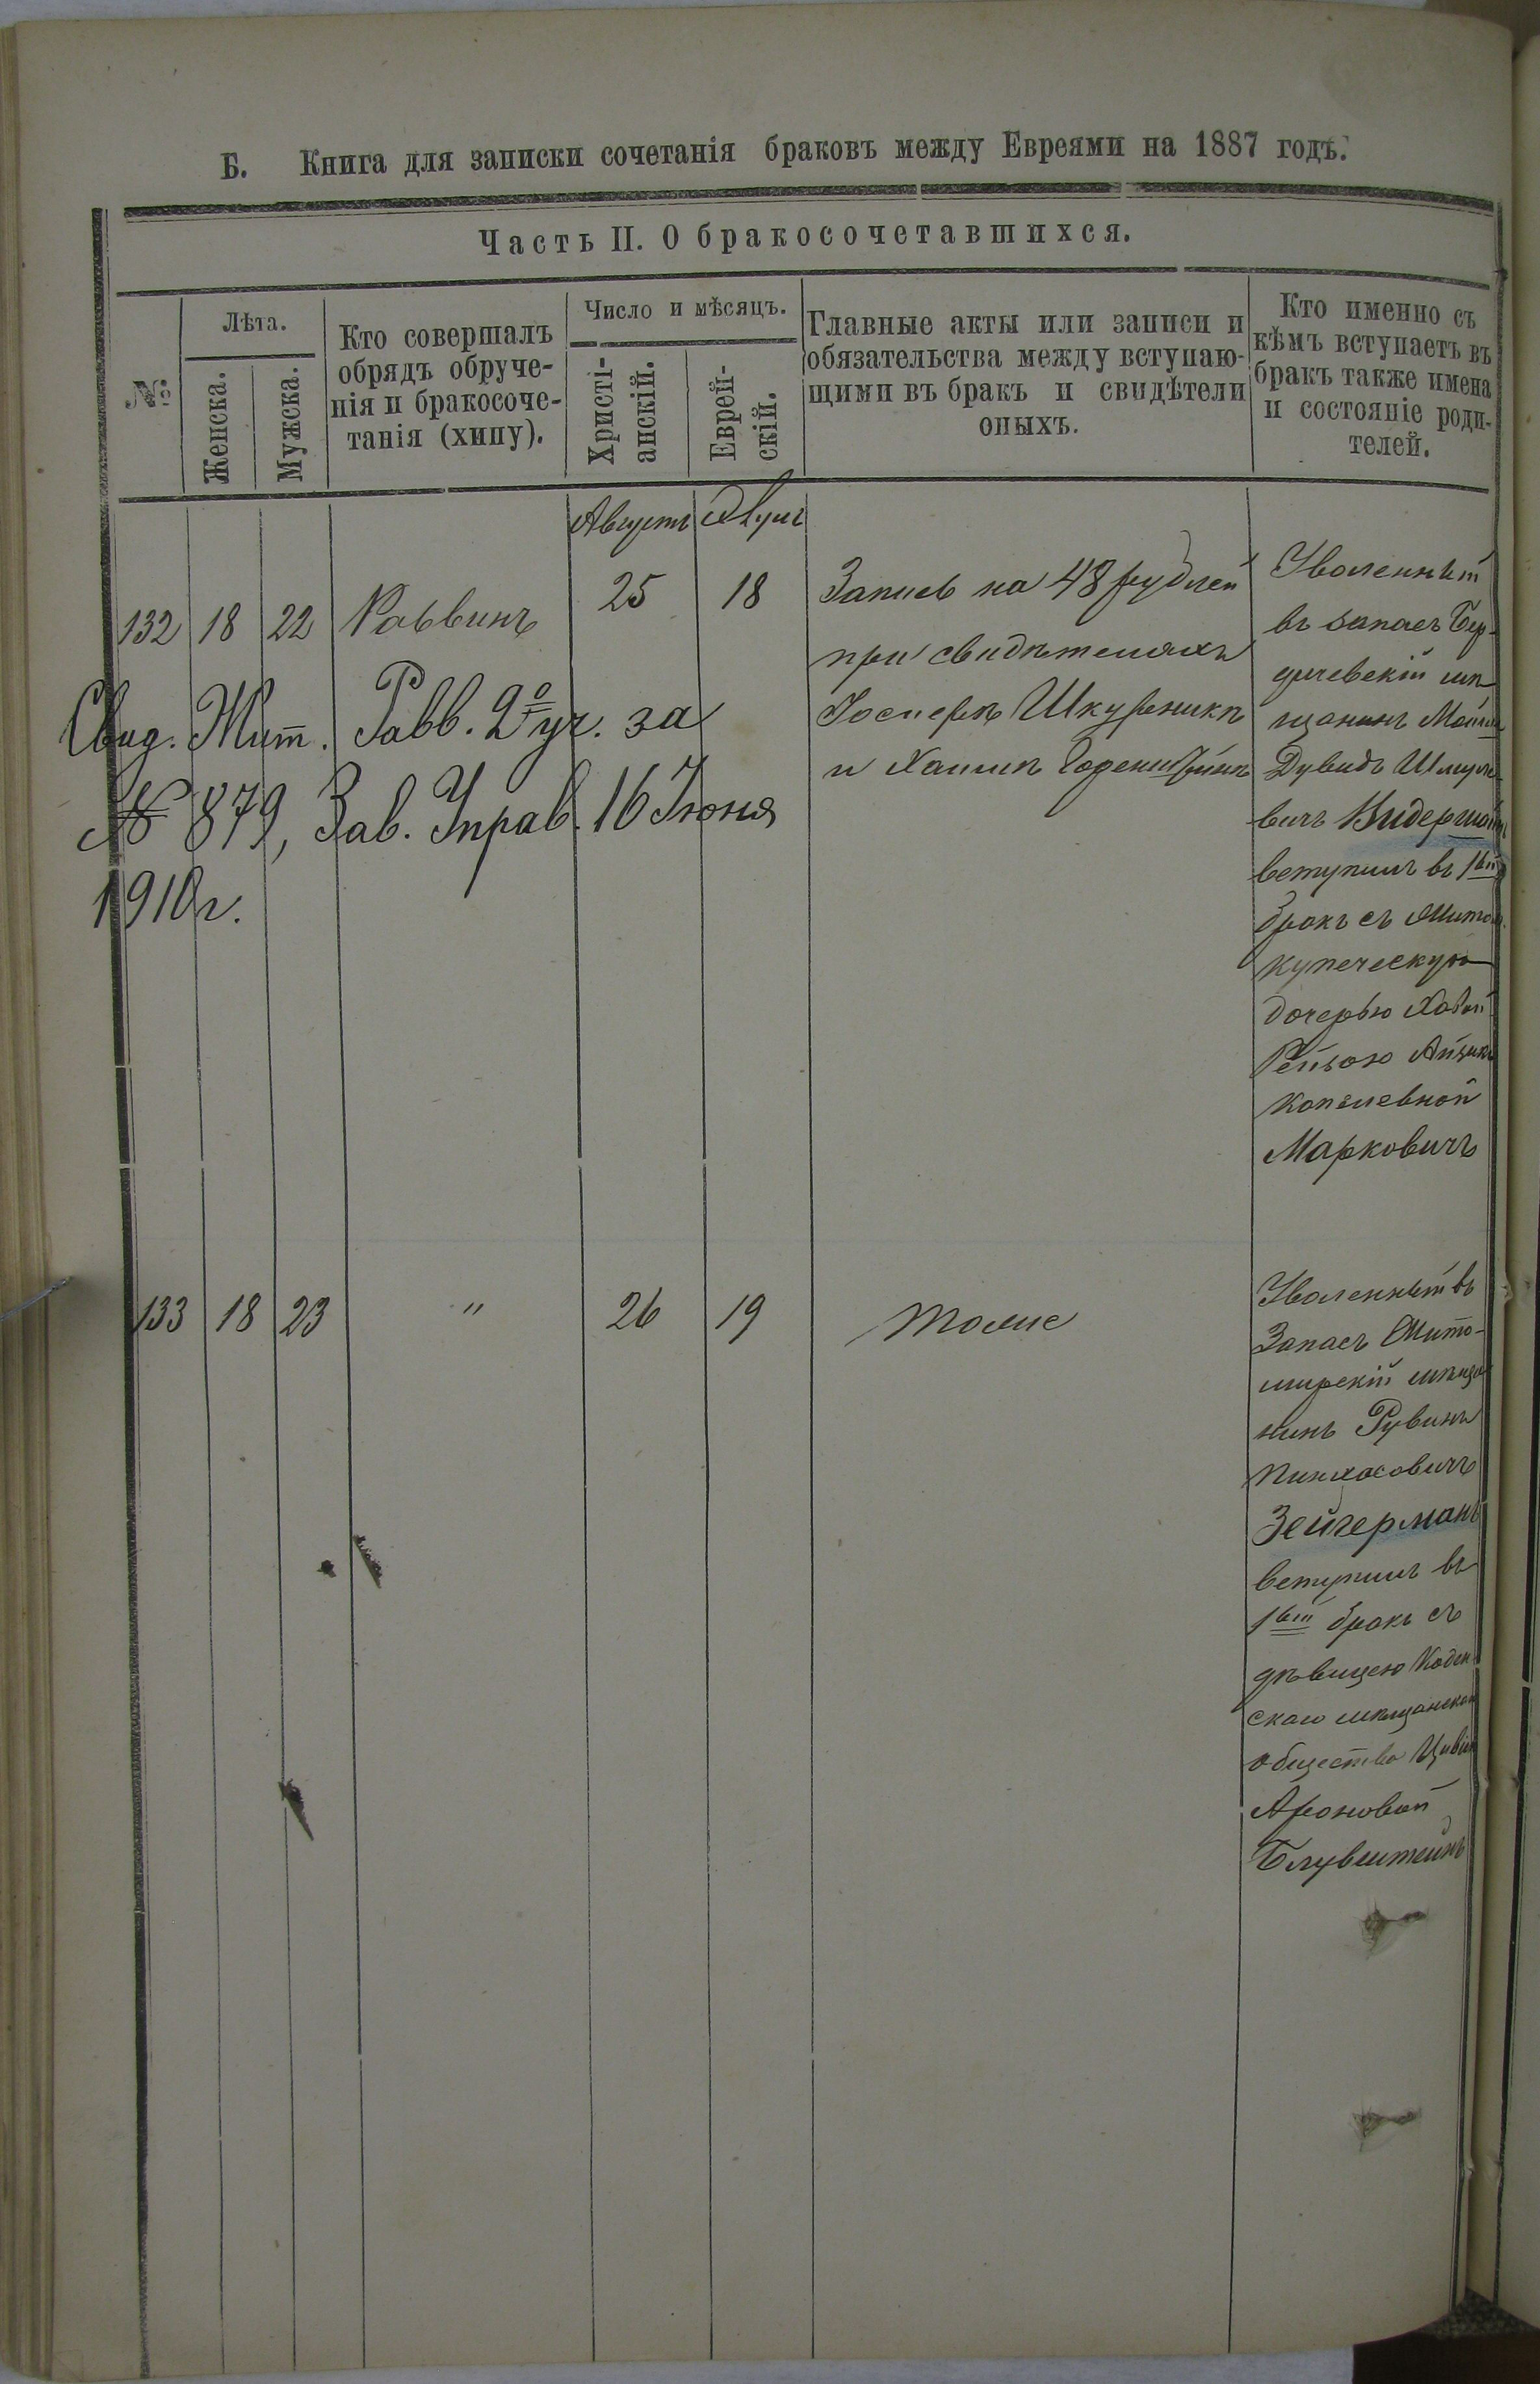 Б. Книга для записки сочетанія браковъ между Евреями на 1887 годъ.
Часть II. О бракосочетавшихся.
№
Лѣта.
Женска.
Мужска.
Кто совершалъ
обрядъ обруче-
нія и бракосоче-
танія (хипу).
Число и мѣсяцъ.
Христі-
анскій.
Еврей-
скій.
Главные акты или записи и
обязательства между вступаю-
щими въ бракъ и свидѣтели
оныхъ.
Кто именно съ
кѣмъ вступаетъ въ
бракъ также имена
и состояніе роди-
телей.
Августъ
132 18 22 Раввинъ 25 18
Запись на 48 рублей
при свидѣтеляхъ
Іосперѣ Шкурникѣ
и Хаимѣ
Уволенный
въ запасъ Бер-
дичевскій мѣ-
щанинъ
Дувидъ Шмуле-
вичъ
вступилъ въ 1вый
бракъ съ Житом.
купеческую
дочерью
Рейзою Айзикъ
Копелевной
Марковичъ
Свид. Жит. Равв. 2о уч. за
№ 879, Зав. Управ. 16 Іюня
1910 г.
133 18 23 " 26 19 Тоже
Уволенный въ
Запасъ Жито-
мирскій мѣща
нинъ Рувинъ
Пинхасовичъ
Зейгерманъ
вступилъ въ
1вый бракъ съ
дѣвицею Коден
скаго мѣщанскаго
общества Цивіею
Ароновой
Блувштейнъ